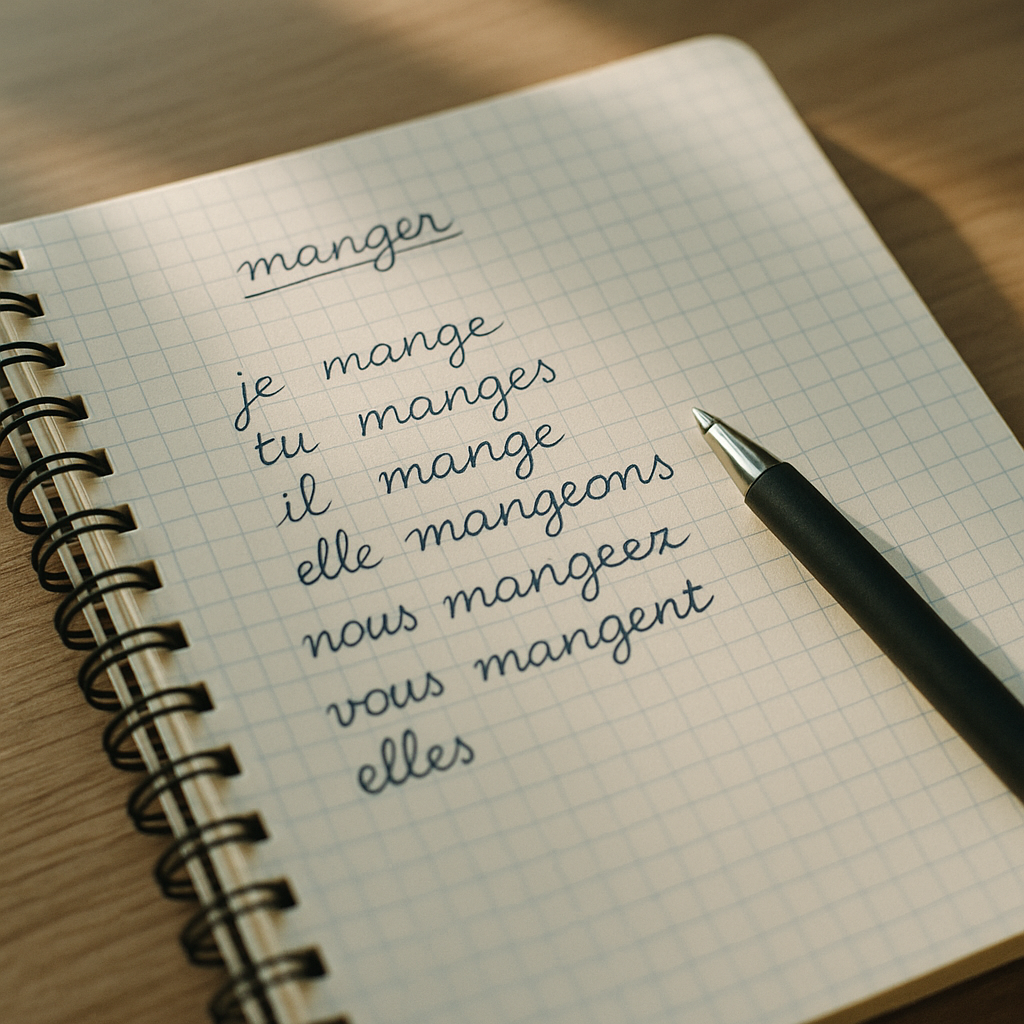 manger
je mange
tu manges
il mange
elle mangeons
nous mangeez
vous mangent
elles